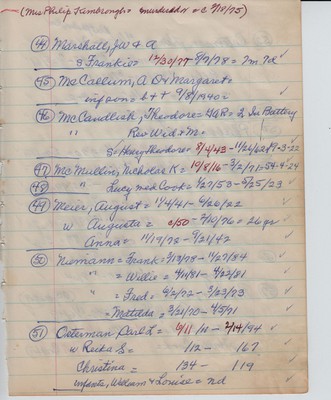 (Mrs Philip Kimbrough = murdered = c 9/11/75)
(44) Marshall, JW & A
s Frankie = 12/30/77 - 8/7/78 = 7m 7d
(45) McCallum, A O & Margaret =
infson = b & d 9/8/1940
(46) McCandlish, Theodore = Lt in Battery
" Rev Wid = M =
s = Hoy Theodore = 8/4/43 - 11/26/62
(47) McMullin, Nicholas K = 19/8/16 - 3/2/71 = 54-4-24
(48) " Lucy nee Cook = 1/27/53 - 6/25/23
(49) Meier, August = 11/4/41 - 6/26/22
w Augusta = c/50 - 2/10/76 = 26 yr
Anna = 11/17/78 - 9/21/42
(50) Niemann = Frank = 3/13/78 - 11/27/84
" = Willie = 4/11/81 - 4/23/81
" = Fred = 9/2/72 - 3/23/73
" = Matilda = 3/21/70 - 4/5/71
(51) Osterman Carl L = 6/11/10 - 2/14/94
w Recka S = 112 - 167
Christina = 134 - 119
infants, William & Louise = nd